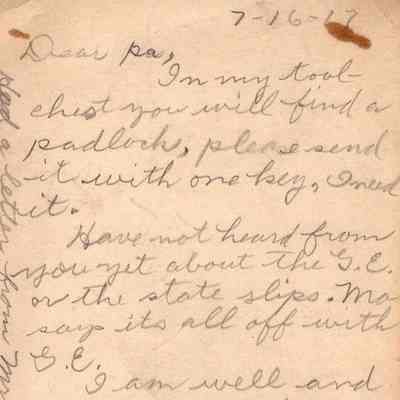 7-16-17
Dear pa,
In my tool-
chest you will find a
padlock, please send
it with one key, I need
it.
Have not heard from
you yet about the G.E.
or the state slips. Ma
says its all off with
G.E.
I am well and
Had a letter from Mrs